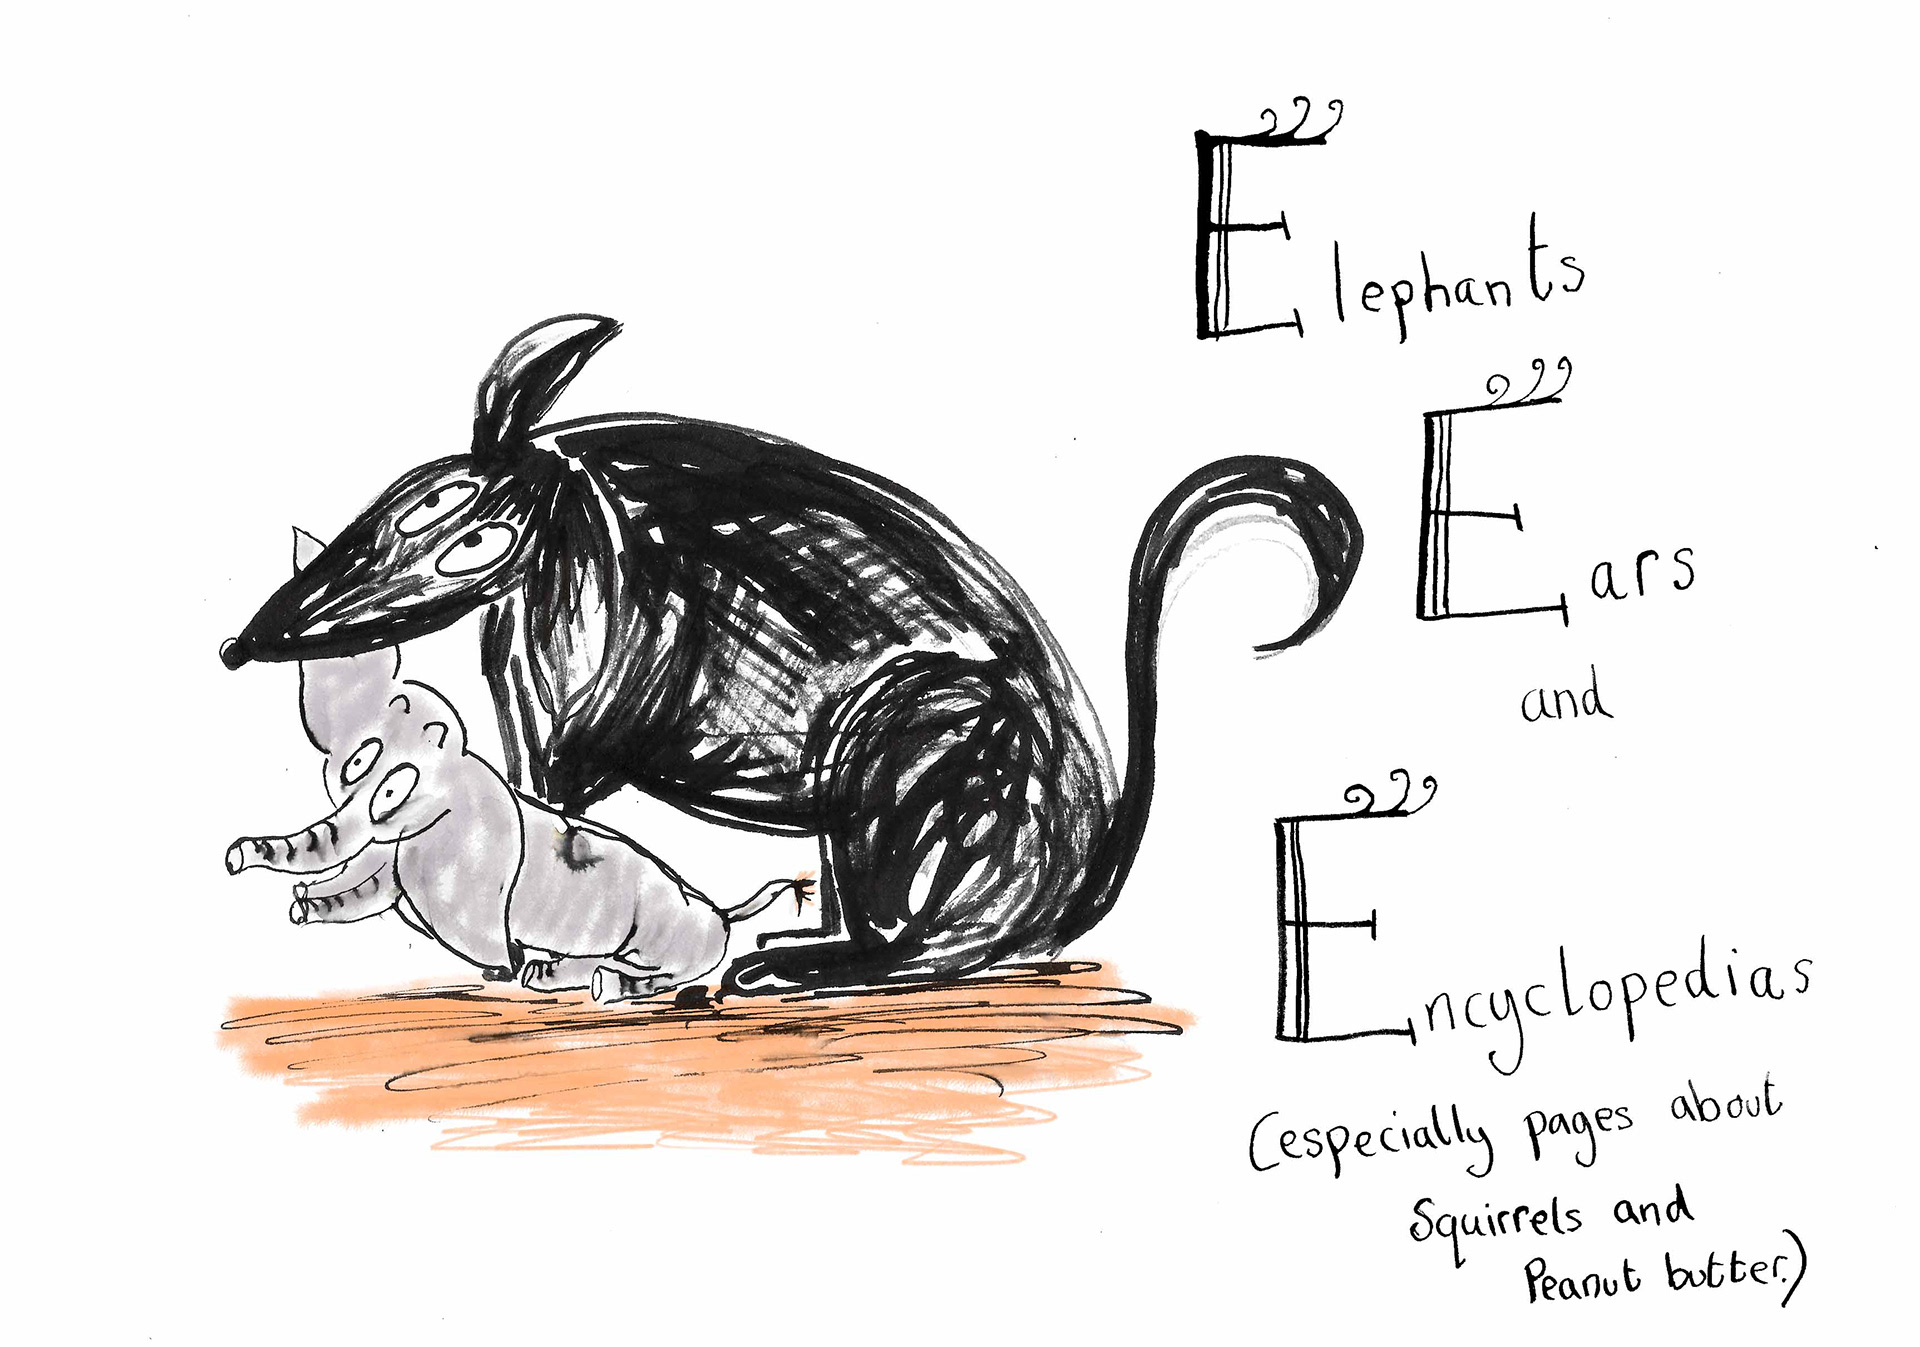 Elephants
Ears
and
Encyclopedias
(especially pages about
Squirrels and
Peanut butter.)